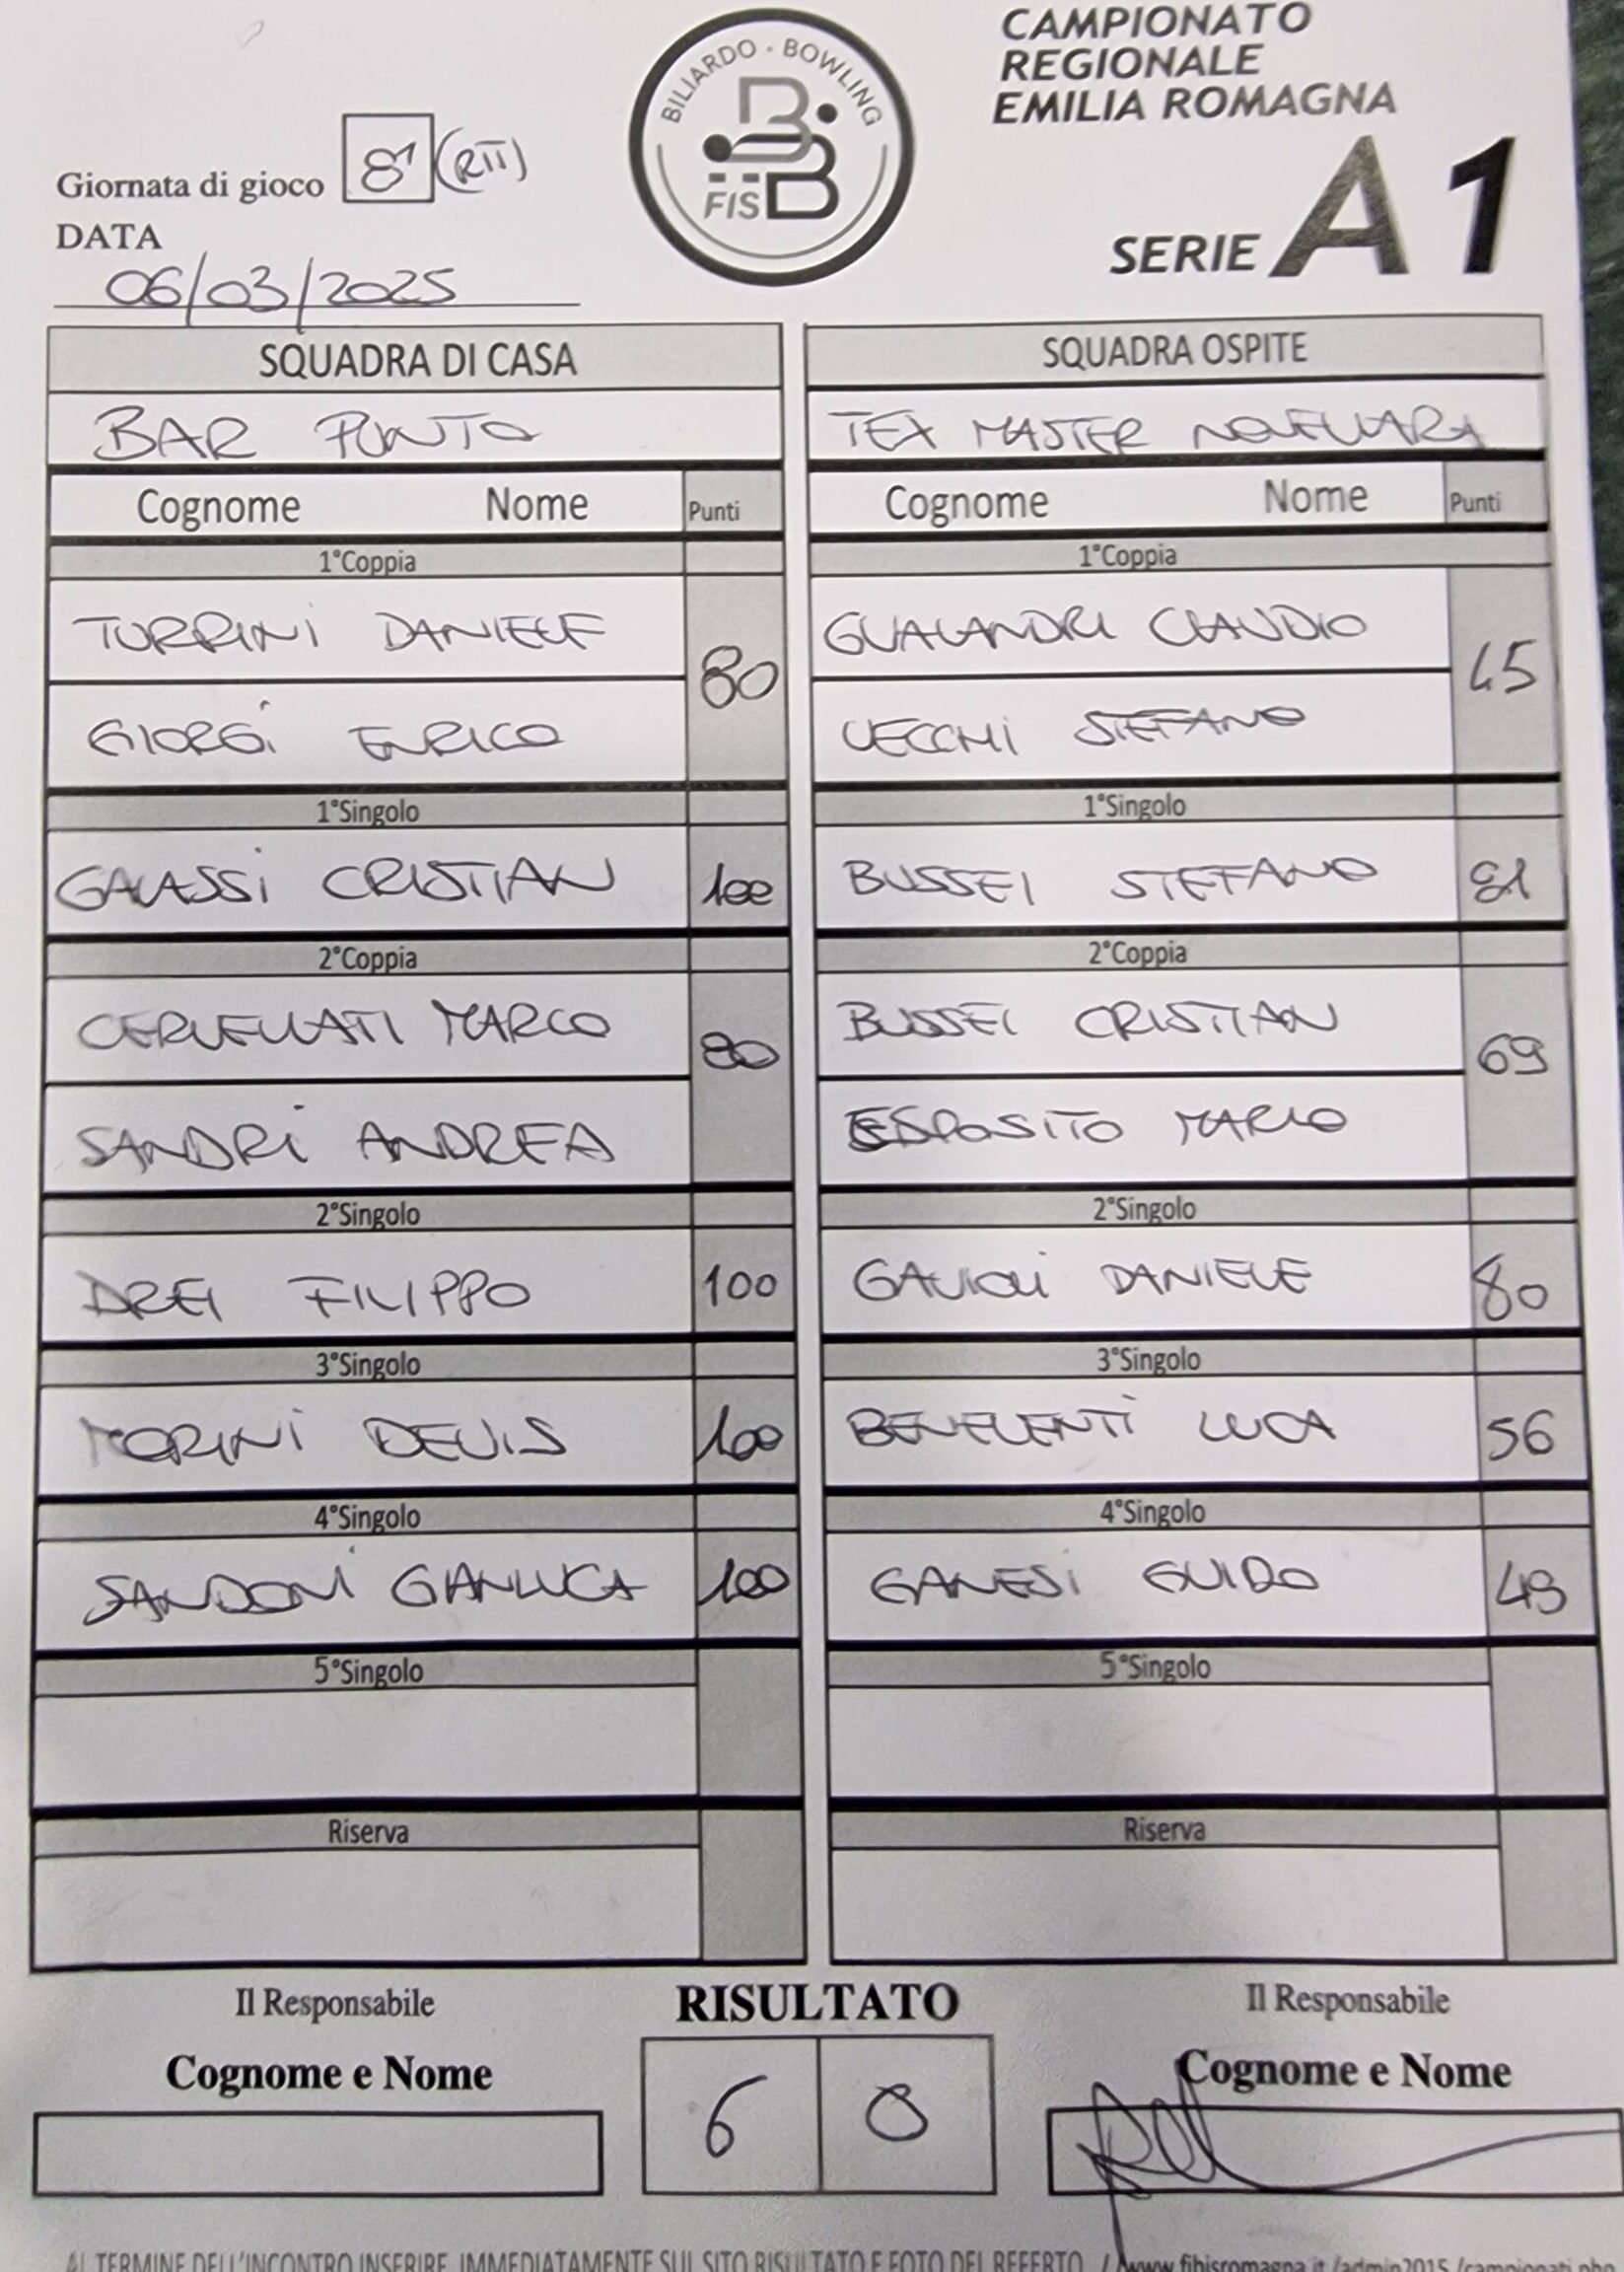 CAMPIONATO
REGIONALE
EMILIA ROMAGNA
SERIE A1
BILIARDO · BOWLING
FISBB
Giornata di gioco 8ª (RIT)
DATA
06/03/2025
SQUADRA DI CASA SQUADRA OSPITE
BAR PUNTO TEX MASTER NOVELLARA
Cognome Nome Punti Cognome Nome Punti
1°Coppia 1°Coppia
TURRINI DANIELE GUALANDRI CLAUDIO
80 45
GIORGI ENRICO VECCHI STEFANO
1°Singolo 1°Singolo
GALASSI CRISTIAN 100 BUSSEI STEFANO 81
2°Coppia 2°Coppia
CERVELLATI MARCO BUSSEI CRISTIAN
80 69
SANDRI ANDREA ESPOSITO MARIO
2°Singolo 2°Singolo
DREI FILIPPO 100 GAVIOLI DANIELE 80
3°Singolo 3°Singolo
MORINI DEVIS 100 BENELENTI LUCA 56
4°Singolo 4°Singolo
SANDONI GIANLUCA 100 GANESI GUIDO 49
5°Singolo 5°Singolo
Riserva Riserva
Il Responsabile RISULTATO Il Responsabile
Cognome e Nome Cognome e Nome
6 0
AL TERMINE DELL'INCONTRO INSERIRE IMMEDIATAMENTE SUL SITO RISULTATO E FOTO DEL REFERTO / www.fibisromagna.it/admin2015/campionati.php